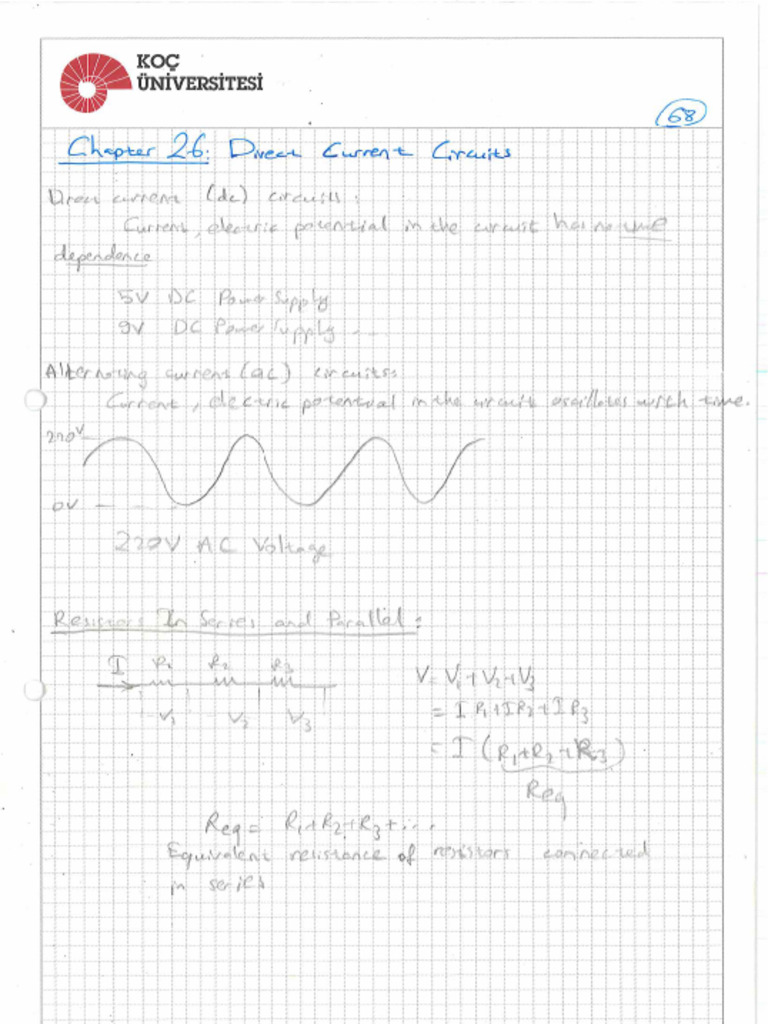 KOÇ
ÜNİVERSİTESİ
68
Chapter 26: Direct Current Circuits
Direct current (dc) circuits:
Current, electric potential in the circuit has no time
dependence
5V DC Power Supply
9V DC Power Supply ...
Alternating current (ac) circuits:
Current, electric potential in the circuit oscillates with time.
220V
0V
220V AC Voltage
Resistors In Series and Parallel:
I R1 R2 R3
V1 V2 V3
V = V1+V2+V3
= I R1+I R2+I R3
= I (R1+R2+R3)
Req
Req = R1+R2+R3+...
Equivalent resistance of resistors connected
in series